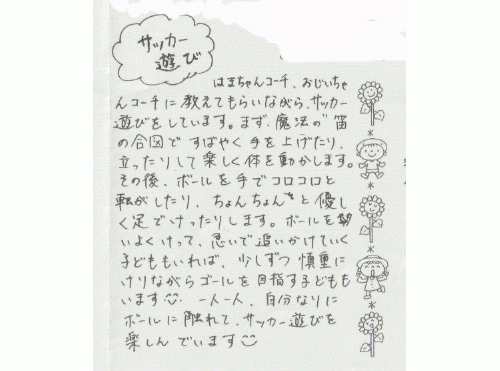 サッカー
遊び
はまちゃんコーチ、おじいちゃ
んコーチに教えてもらいながら、サッカー
遊びをしています。まず、魔法の"笛
の合図ですばやく手を上げたり、
立ったりして楽しく体を動かします。
その後、ボールを手でコロコロと
転がしたり、ちょんちょんと優し
く足でけったりします。ボールを勢
いよくけって、急いで追いかけていく
子どももいれば、少しずつ慎重に
けりながらゴールを目指す子どもも
います 一人一人、自分なりに
ボールに触れて、サッカー遊びを
楽しんでいます